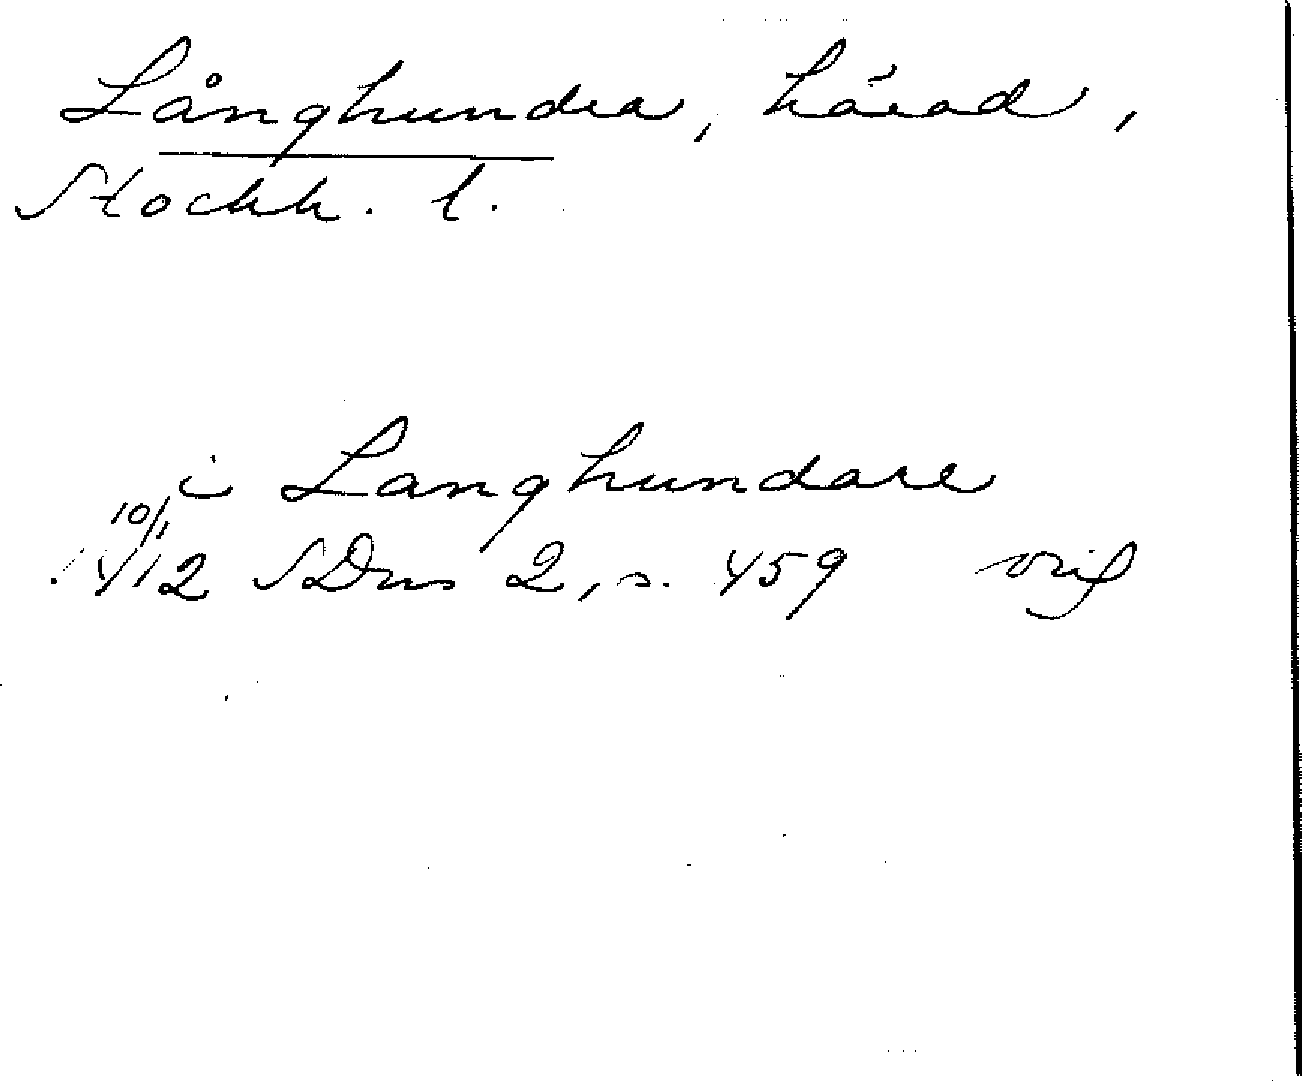 Långhundra, härad,
Stockh. l.
i Langhundare
10/1
1412 SDns 2, s. 459 orig